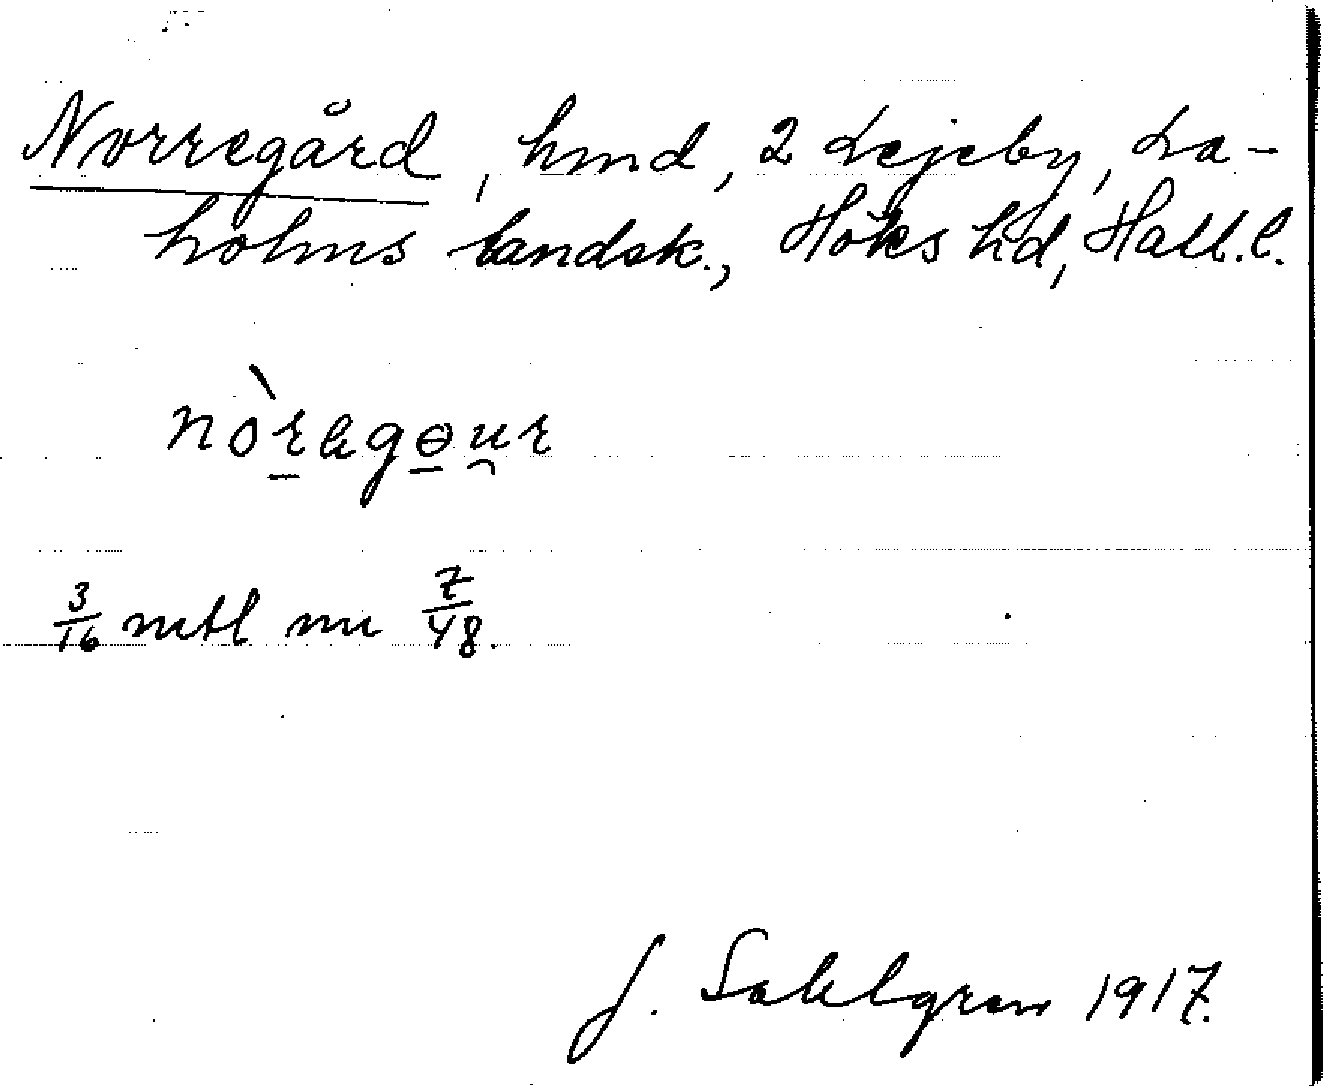 Norregård, hmd, 2 Lejeby, La-
holms landsk., Höks hd, Hall. l.
nòrag​ɵu̯r
3/16 mtl nu 7/48.
J. Sahlgren 1917.